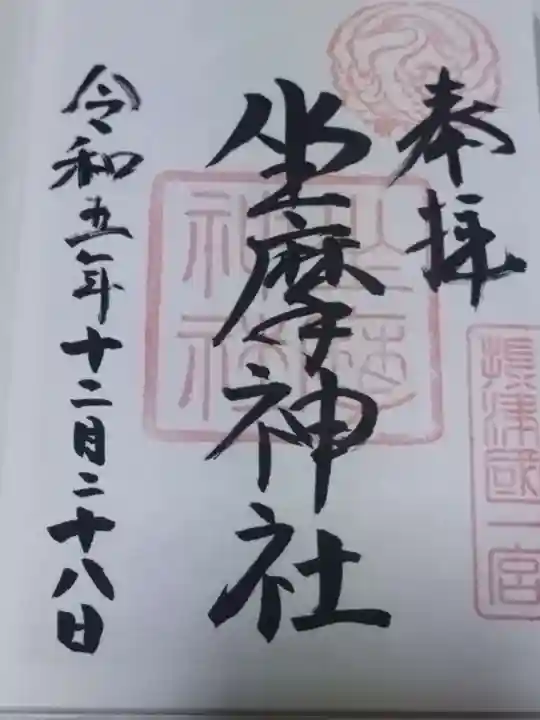 奉拝
摂津國一宮
坐摩神社
坐摩
神社
令和五年十二月二十八日